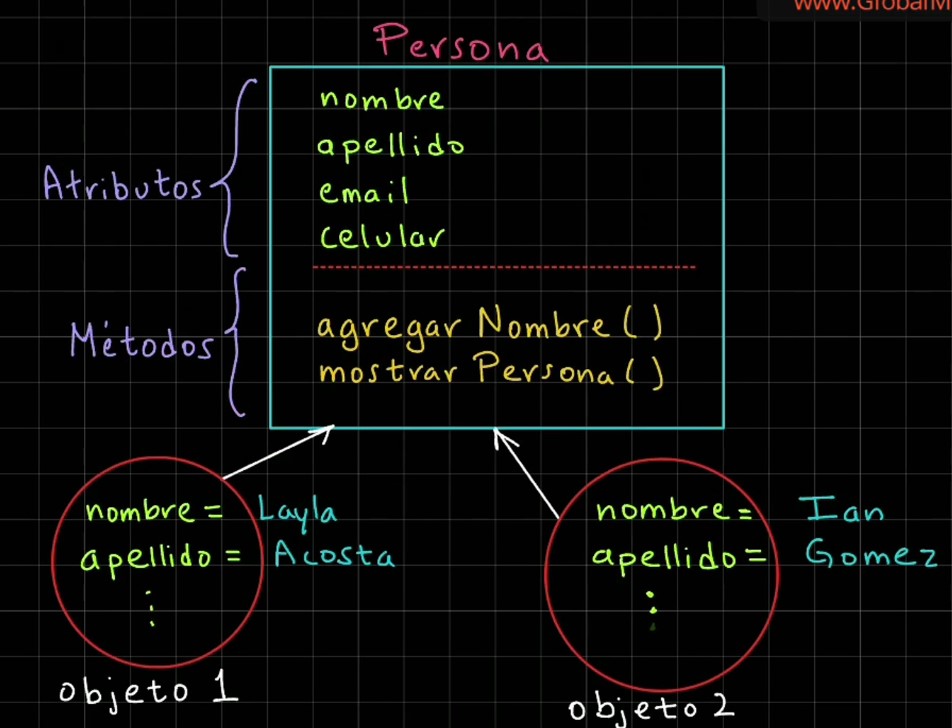 www.GlobalM
Persona
nombre
apellido
email
celular
Atributos
agregar Nombre ( )
mostrar Persona ( )
Métodos
nombre = Layla
apellido = Acosta
objeto 1
nombre = Ian
apellido = Gomez
objeto 2